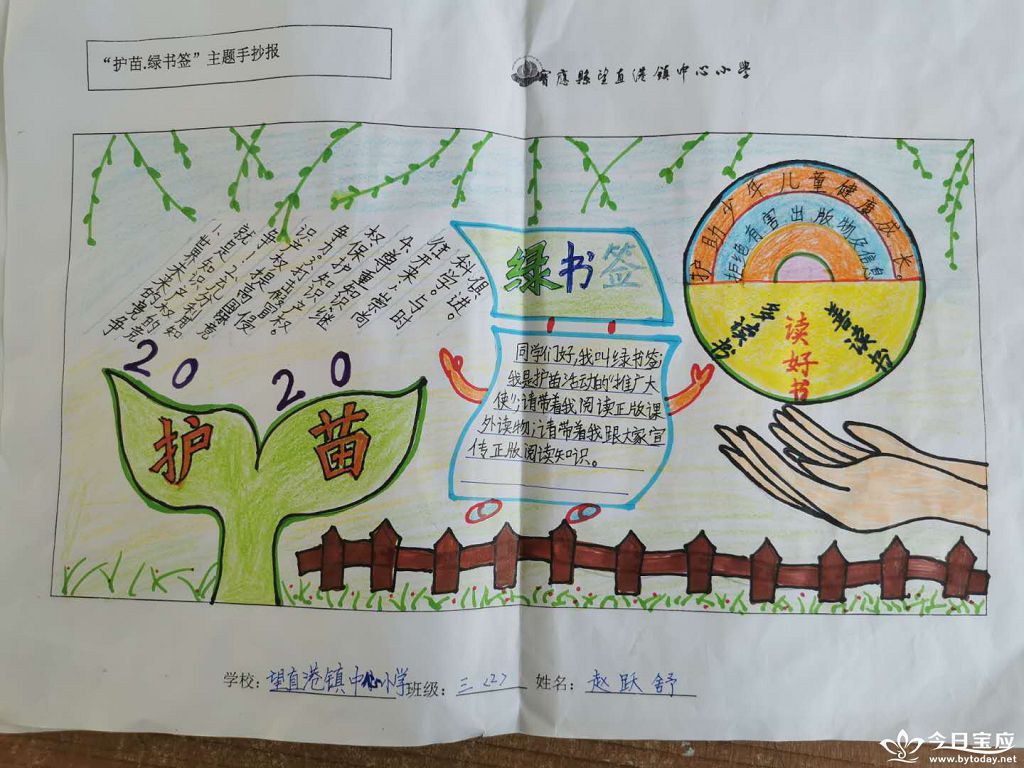 “护苗.绿书签”主题手抄报
宝應縣望直港镇中心小學
1、世界未来的竞争
护助少年儿童健康成长。
拒绝有害出版物及信息
多读书
读好书
善读书
绿书签
同学们好,我叫绿书签;
我是护苗活动的“推广大
使”;请带着我阅读正版课
外读物;请带着我跟大家宣
传正版阅读知识。
2020
护苗
学校:望直港镇中心小学班级:三〈2〉姓名:赵跃舒
今日宝应
www.bytoday.net